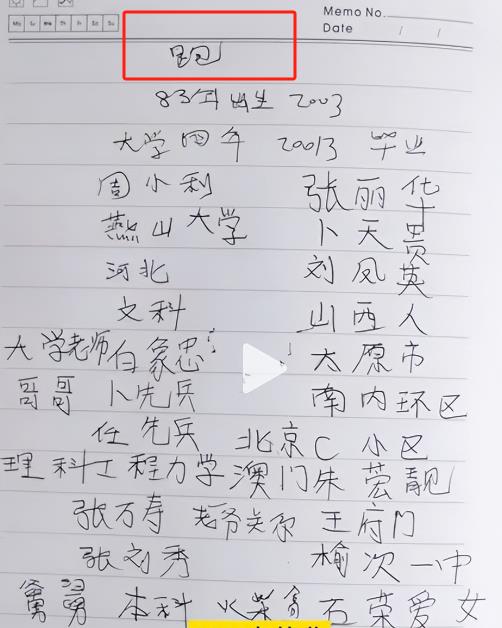 Memo No.
Mo Tu We Th Fr Sa Su
Date / /
83年出生 2003
大学四年 20013 毕业
周小利 张丽华
燕山大学 卜天贵
河北 刘凤英
文科 山西人
大学老师白象忠 太原市
哥哥 卜先兵 南内环区
任先兵 北京C小区
理科工程力学 澳门朱 靓
张万寿 老爷关系 王府门
张刘秀 榆次一中
舅舅 本科 火柴 石荣爱女